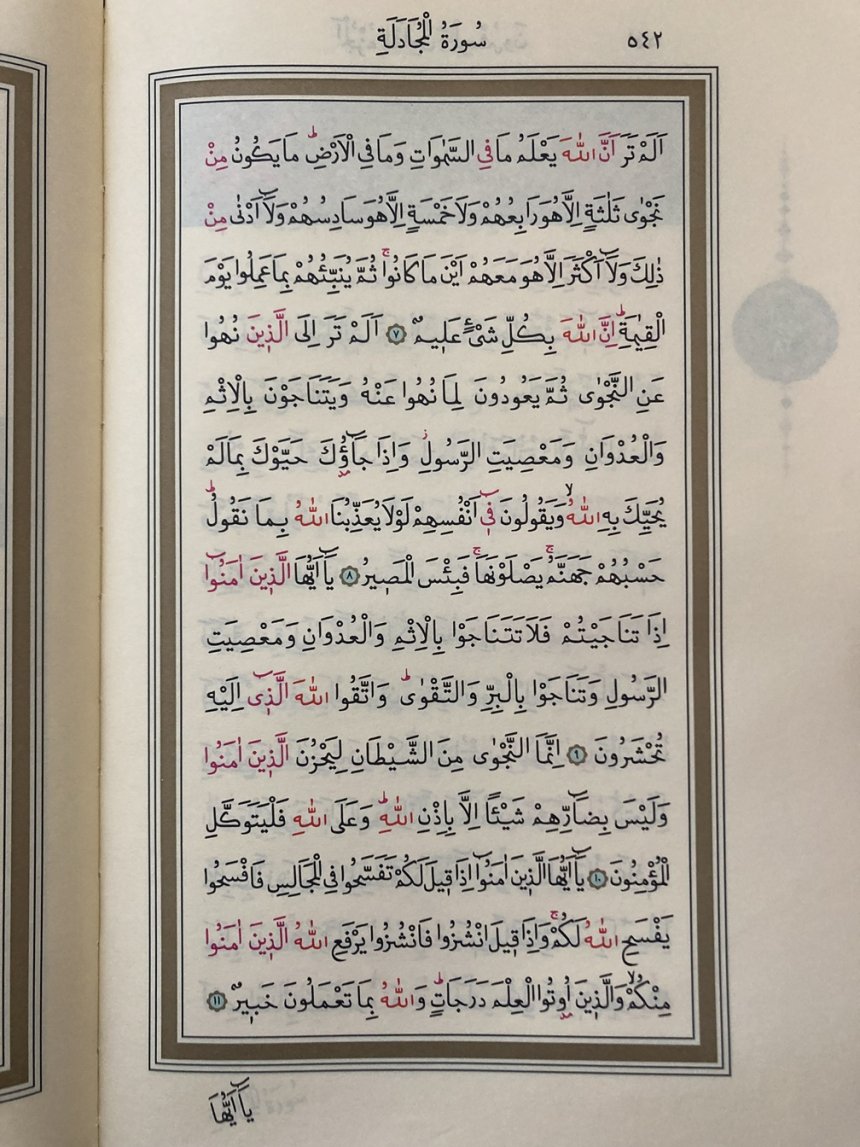 سُورَةُ الْمُجَادَلَةِ
٥٤٢
اَلَمْ تَرَ اَنَّ اللّٰهَ يَعْلَمُ مَا فِي السَّمٰوَاتِ وَمَا فِي الْاَرْضِۜ مَا يَكُونُ مِنْ
نَجْوٰى ثَلٰثَةٍ اِلَّا هُوَ رَابِعُهُمْ وَلَا خَمْسَةٍ اِلَّا هُوَ سَادِسُهُمْ وَلَٓا اَدْنٰى مِنْ
ذٰلِكَ وَلَٓا اَكْثَرَ اِلَّا هُوَ مَعَهُمْ اَيْنَ مَا كَانُواۚ ثُمَّ يُنَبِّئُهُمْ بِمَا عَمِلُوا يَوْمَ
الْقِيٰمَةِۜ اِنَّ اللّٰهَ بِكُلِّ شَيْءٍ عَلٖيمٌ ﴿٧﴾ اَلَمْ تَرَ اِلَى الَّذٖينَ نُهُوا
عَنِ النَّجْوٰى ثُمَّ يَعُودُونَ لِمَا نُهُوا عَنْهُ وَيَتَنَاجَوْنَ بِالْاِثْمِ
وَالْعُدْوَانِ وَمَعْصِيَتِ الرَّسُولِؗ وَاِذَا جَٓاؤُ۫كَ حَيَّوْكَ بِمَا لَمْ
يُحَيِّكَ بِهِ اللّٰهُۙ وَيَقُولُونَ فٖٓي اَنْفُسِهِمْ لَوْلَا يُعَذِّبُنَا اللّٰهُ بِمَا نَقُولُۜ
حَسْبُهُمْ جَهَنَّمُۚ يَصْلَوْنَهَاۚ فَبِئْسَ الْمَصٖيرُ ﴿٨﴾ يَٓا اَيُّهَا الَّذٖينَ اٰمَنُٓوا
اِذَا تَنَاجَيْتُمْ فَلَا تَتَنَاجَوْا بِالْاِثْمِ وَالْعُدْوَانِ وَمَعْصِيَتِ
الرَّسُولِ وَتَنَاجَوْا بِالْبِرِّ وَالتَّقْوٰىۜ وَاتَّقُوا اللّٰهَ الَّذٖٓي اِلَيْهِ
تُحْشَرُونَ ﴿٩﴾ اِنَّمَا النَّجْوٰى مِنَ الشَّيْطَانِ لِيَحْزُنَ الَّذٖينَ اٰمَنُوا
وَلَيْسَ بِضَٓارِّهِمْ شَيْـًٔا اِلَّا بِاِذْنِ اللّٰهِۜ وَعَلَى اللّٰهِ فَلْيَتَوَكَّلِ
الْمُؤْمِنُونَ ﴿١٠﴾ يَٓا اَيُّهَا الَّذٖينَ اٰمَنُٓوا اِذَا قٖيلَ لَكُمْ تَفَسَّحُوا فِي الْمَجَالِسِ فَافْسَحُوا
يَفْسَحِ اللّٰهُ لَكُمْۚ وَاِذَا قٖيلَ انْشُزُوا فَانْشُزُوا يَرْفَعِ اللّٰهُ الَّذٖينَ اٰمَنُوا
مِنْكُمْۙ وَالَّذٖينَ اُو۫تُوا الْعِلْمَ دَرَجَاتٍۜ وَاللّٰهُ بِمَا تَعْمَلُونَ خَبٖيرٌ ﴿١١﴾
يَٓا اَيُّهَا